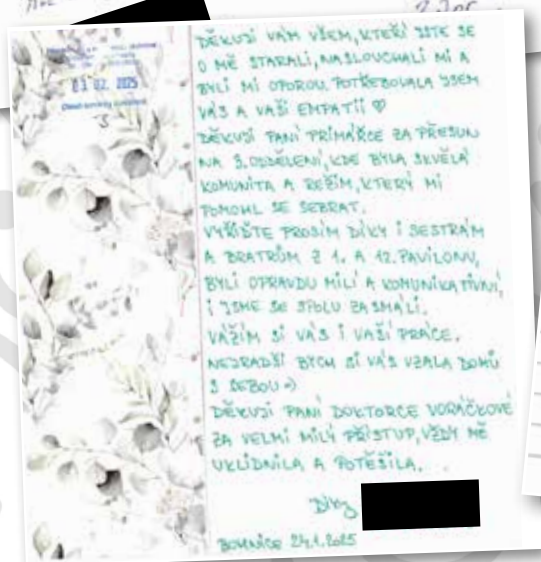 03 02. 2025
DĚKUJI VÁM VŠEM, KTEŘÍ JSTE SE
O MĚ STARALI, NASLOUCHALI MI A
BYLI MI OPOROU. POTŘEBOVALA JSEM
VÁS A VAŠI EMPATII ♡
DĚKUJI PANÍ PRIMÁŘCE ZA PŘESUN
NA 3. ODDĚLENÍ, KDE BYLA SKVĚLÁ
KOMUNITA A REŽIM, KTERÝ MI
POMOHL SE SEBRAT.
VYŘIĎTE PROSÍM DÍKY I SESTRÁM
A BRATRŮM Z 1. A 12. PAVILONU,
BYLI OPRAVDU MILÍ A KOMUNIKATIVNÍ,
I JSME SE SPOLU ZASMÁLI.
VÁŽÍM SI VÁS I VAŠÍ PRÁCE.
NEJRADŠI BYCH SI VÁS VZALA DOMŮ
S SEBOU =)
DĚKUJI PANÍ DOKTORCE VORÁČKOVÉ
ZA VELMI MILÝ PŘÍSTUP, VŽDY MĚ
UKLIDNILA A POTĚŠILA.
Díky
BOHNICE 24.1.2025